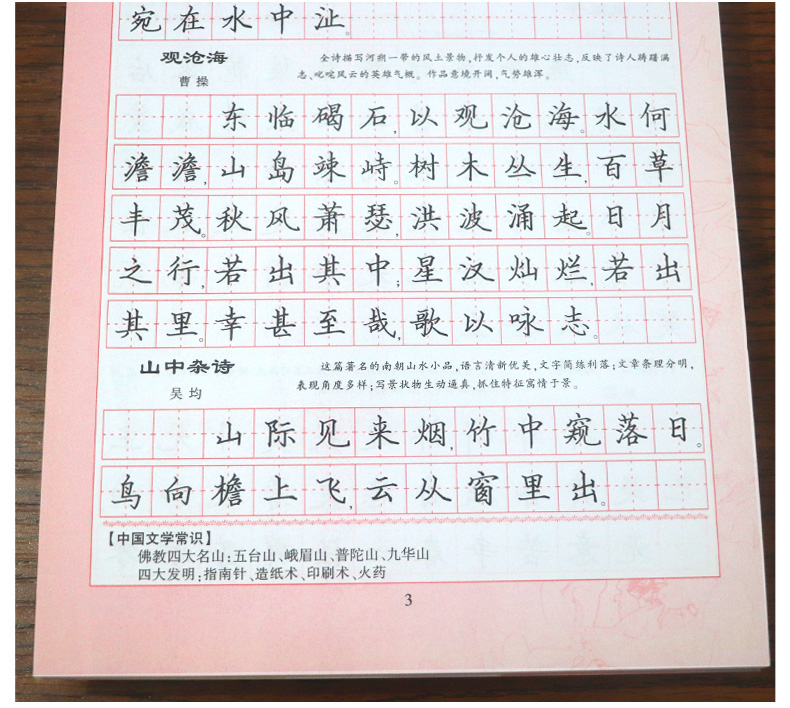 宛在水中沚。
观沧海
曹操
全诗描写河朔一带的风土景物,抒发个人的雄心壮志,反映了诗人踌躇满
志、叱咤风云的英雄气概。作品意境开阔,气势雄浑。
东临碣石,以观沧海。水何
澹澹,山岛竦峙。树木丛生,百草
丰茂。秋风萧瑟,洪波涌起。日月
之行,若出其中;星汉灿烂,若出
其里。幸甚至哉,歌以咏志。
山中杂诗
吴均
这篇著名的南朝山水小品,语言清新优美,文字简练利落;文章条理分明,
表现角度多样;写景状物生动逼真,抓住特征寓情于景。
山际见来烟,竹中窥落日。
鸟向檐上飞,云从窗里出。
【中国文学常识】
佛教四大名山:五台山、峨眉山、普陀山、九华山
四大发明:指南针、造纸术、印刷术、火药
3